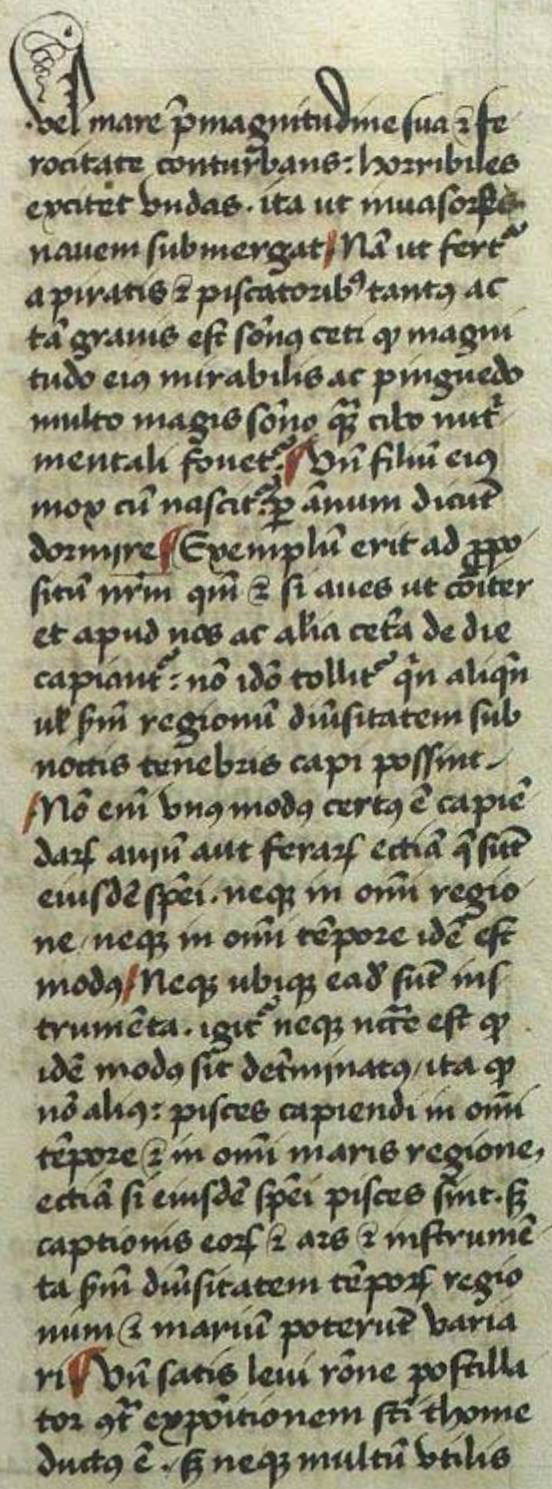 vel mare p̄ magnitudine sua ⁊ fe
rocitate conturbans : horribiles
excitet vndas . ita ut inuasores
nauem submergat / Nā ut fert᷑
a piratis ⁊ piscatoribꝰ tantꝰ ac
tā grauis est sōnꝰ ceti ꝙ magni
tudo eiꝰ mirabilis ac pinguedo
multo magis sōno q̄ꝫ cibo nut̄
mentali fouet᷑ . ¶ Vn̄ filiū eiꝰ
mox cū nascit᷑ : ꝑ annum dicūt
dormire ¶ Exemplū erit ad ꝓpo
situ nr̄m qm̄ ⁊ si aues ut cōiter
et apud nos ac alia cetā de die
capiant᷑ : nō idō tollit᷑ qn̄ aliqn̄
ul' scd̄m regionū diūsitatem sub
noctis tenebris capi possint .
/ Nō enī vnꝰ modꝰ certꝰ ē capiē
darꝝ auiū aut ferarꝝ ectiā q̄ sūt
eiusdē spēi . neqꝫ in omī regio
ne / neqꝫ in omī tēpore idē est
modꝰ / Neqꝫ ubiqꝫ eadē sūt ins
trumēta . igit᷑ neqꝫ nccē est ꝙ
idē modꝰ sit detminatꝰ / ita ꝙ
nō aliꝰ : pisces capiendi in omī
tēpore ⁊ in omī maris regione ,
ectiā si eiusdē spēi pisces sint . sꝫ
captionis eorꝝ ⁊ ars ⁊ instrumē
ta scd̄m diūsitatem tēporꝝ regio
num ⁊ mariū poterūt varia
ri ¶ Vn̄ satis leui rōne postilla
tor ꝯt̄ expōitionem sc̄i thome
ductꝰ ē . sꝫ neqꝫ multū vtilis